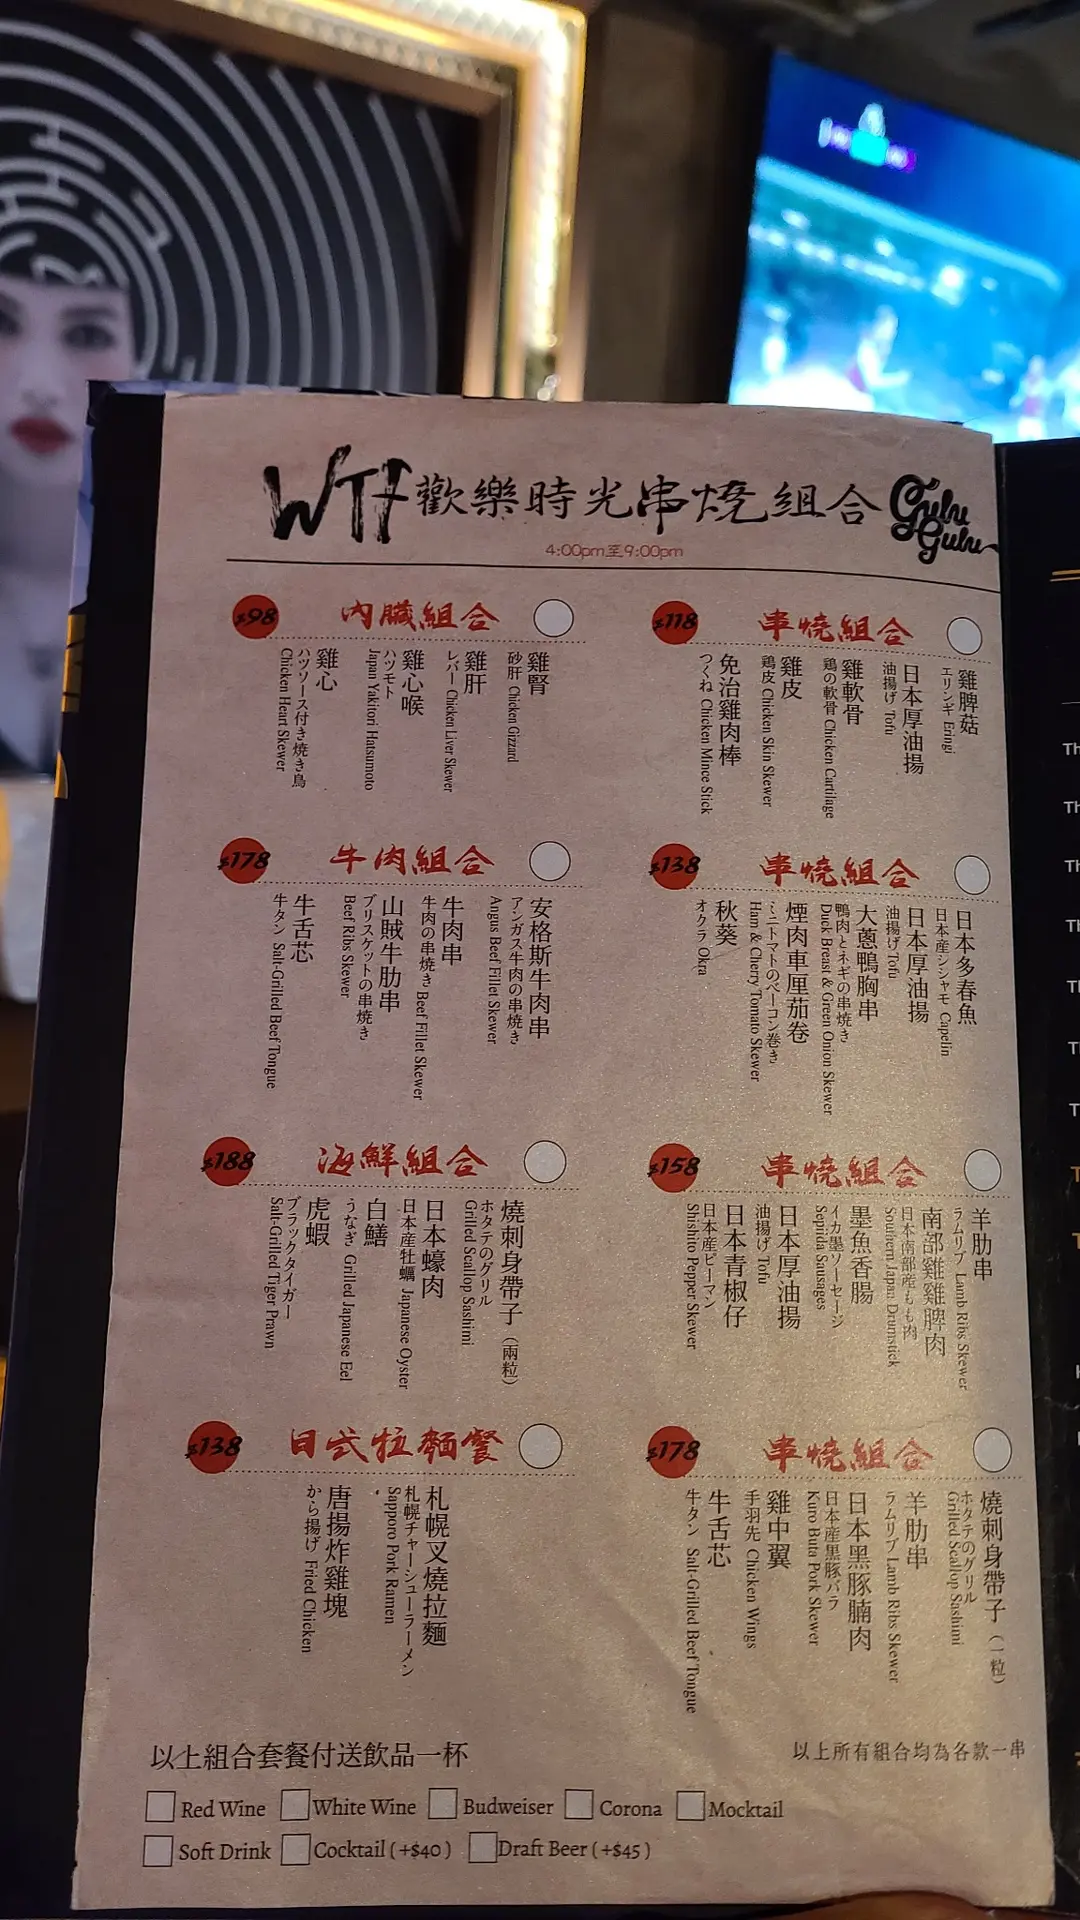 WTF 歡樂時光串燒組合 Gulu Gulu
4:00pm至9:00pm
$98 內臟組合
雞腎
砂肝 Chicken Gizzard
雞肝
レバー Chicken Liver Skewer
雞心喉
ハツモト
Japan Yakitori Hatsumoto
雞心
ハツソース付き焼き鳥
Chicken Heart Skewer
$118 串燒組合
雞脾菇
エリンギ Eringi
日本厚油揚
油揚げ Tofu
雞軟骨
鶏の軟骨 Chicken Cartilage
雞皮
鶏皮 Chicken Skin Skewer
免治雞肉棒
つくね Chicken Mince Stick
$178 牛肉組合
安格斯牛肉串
アンガス牛肉の串焼き
Angus Beef Fillet Skewer
牛肉串
牛肉の串焼き Beef Fillet Skewer
山賊牛肋串
ブリスケットの串焼き
Beef Ribs Skewer
牛舌芯
牛タン Salt-Grilled Beef Tongue
$138 串燒組合
日本多春魚
日本産シシャモ Capelin
日本厚油揚
油揚げ Tofu
大蔥鴨胸串
鴨肉とネギの串焼き
Duck Breast & Green Onion Skewer
煙肉車厘茄卷
ミニトマトのベーコン巻き
Ham & Cherry Tomato Skewer
秋葵
オクラ Okra
$188 海鮮組合
燒刺身帶子（兩粒）
ホタテのグリル
Grilled Scallop Sashimi
日本蠔肉
日本産牡蠣 Japanese Oyster
白鱔
うなぎ Grilled Japanese Eel
虎蝦
ブラックタイガー
Salt-Grilled Tiger Prawn
$158 串燒組合
羊肋串
ラムリブ Lamb Ribs Skewer
南部雞雞脾肉
日本南部産もも肉
Southern Japan Drumstick
墨魚香腸
イカ墨ソーセージ
Sepiida Sausages
日本厚油揚
油揚げ Tofu
日本青椒仔
日本産ピーマン
Shishito Pepper Skewer
$138 日式拉麵餐
札幌叉燒拉麵
札幌チャーシューラーメン
Sapporo Pork Ramen
唐揚炸雞塊
から揚げ Fried Chicken
$178 串燒組合
燒刺身帶子（一粒）
ホタテのグリル
Grilled Scallop Sashimi
羊肋串
ラムリブ Lamb Ribs Skewer
日本黑豚腩肉
日本産黒豚バラ
Kuro Buta Pork Skewer
雞中翼
手羽先 Chicken Wings
牛舌芯
牛タン Salt-Grilled Beef Tongue
以上組合套餐付送飲品一杯
以上所有組合均為各款一串
Red Wine White Wine Budweiser Corona Mocktail
Soft Drink Cocktail (+$40) Draft Beer (+$45)